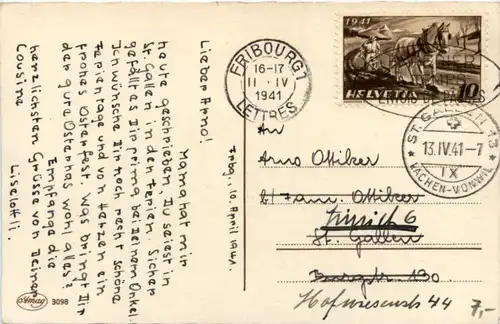 Frbg., 10. April 1941.
Lieber Arno!
Mama hat mir
heute geschrieben, Du seiest in
St Gallen in den Ferien. Sicher
gefällts Dir prima bei Deinem Onkel.
Ich wünsche Dir noch recht schöne
Ferientage und von Herzen ein
frohes Osterfest. Was bringt Dir
der gute Osterhas wohl alles?
Empfange die
herzlichsten Grüsse von Deiner
Cousine
Liselotti.
Amag 3098
FRIBOURG 1
16-17
11.IV
1941
LETTRES
1941
HELVETIA 10
ST. GALLEN 13
13.IV.41-7
IX
LACHEN-VONWIL
An
Arno Ottiker
b/ Fam. Ottiker
Zürich 6
St. Gallen
Burgstr. 130.
Hofwiesenstr 44
7,-